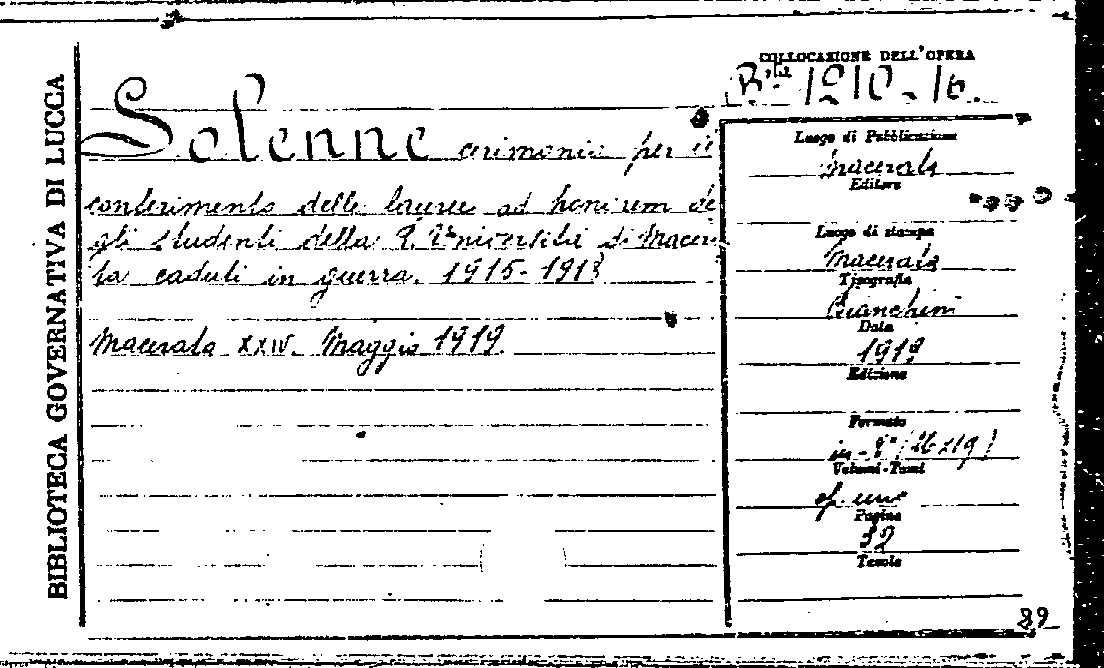 BIBLIOTECA GOVERNATIVA DI LUCCA
COLLOCAZIONE DELL'OPERA
1910-16.
Solenne cerimonia per il
conferimento delle lauree ad honorem de
gli studenti della R. Università di Macera
ta caduti in guerra. 1915-1918
Macerata XXIV. Maggio 1919.
Luogo di Pubblicazione
Macerata
Editore
Luogo di stampa
Macerata
Tipografia
Bianchini
Data
1919
Edizione
Formato
in-8° (26x19)
Volumi-Tomi
uno
Pagine
32
Tavole
89